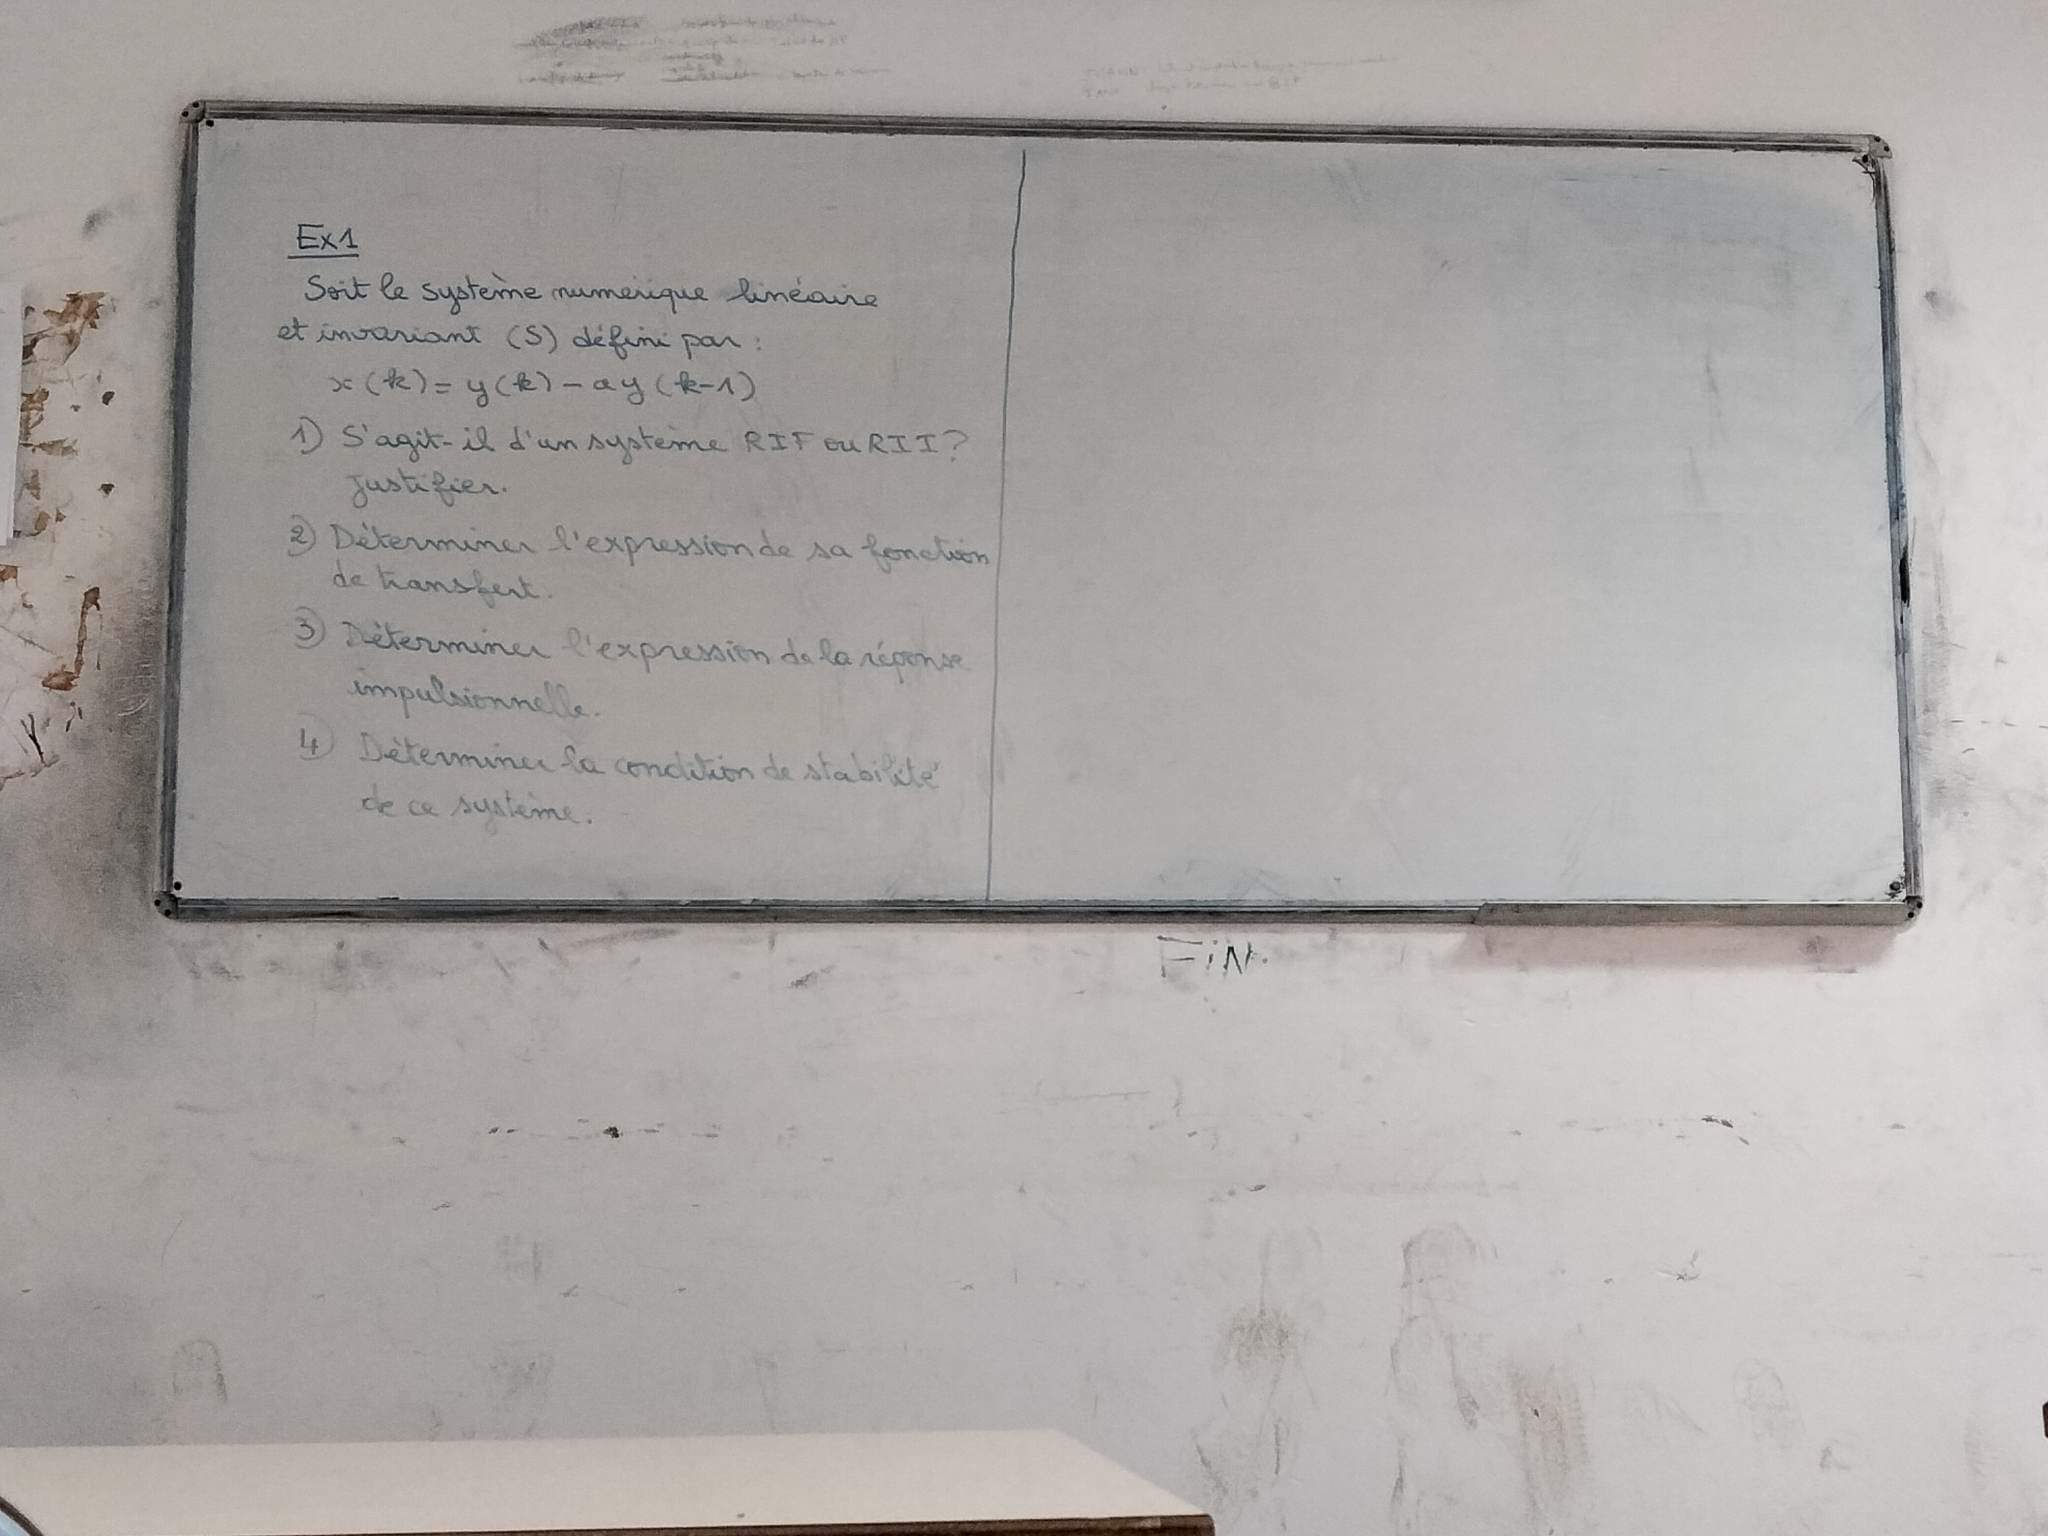 Ex1
Soit le système numérique linéaire
et invariant (S) défini par :
x(k) = y(k) - a y(k-1)
1) S'agit-il d'un système RIF ou RII ?
justifier.
2) Déterminer l'expression de sa fonction
de transfert.
3) Déterminer l'expression de la réponse
impulsionnelle.
4) Déterminer la condition de stabilité
de ce système.
FiN.